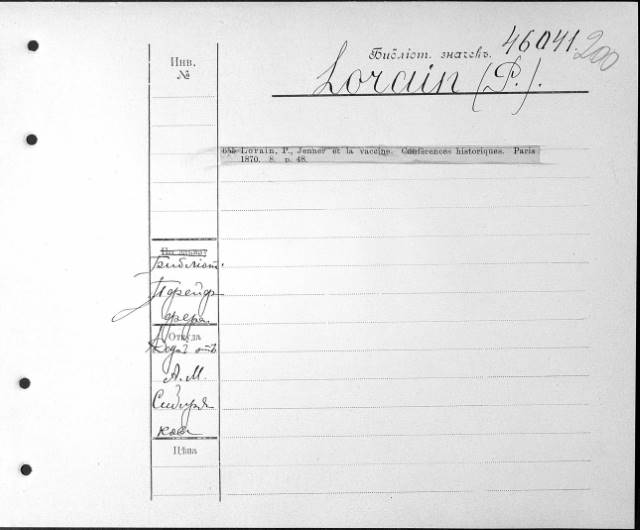 Библіот. значекъ. 46041. 200
Lorain (P.).
Инв.
№
655 Lorain, P., Jenner et la vaccine. Conférences historiques. Paris
1870. 8. p. 48.
Библіот.
Пфейф
фера.
Откуда
отъ
А. М.
Сибиря
кова
Цѣна